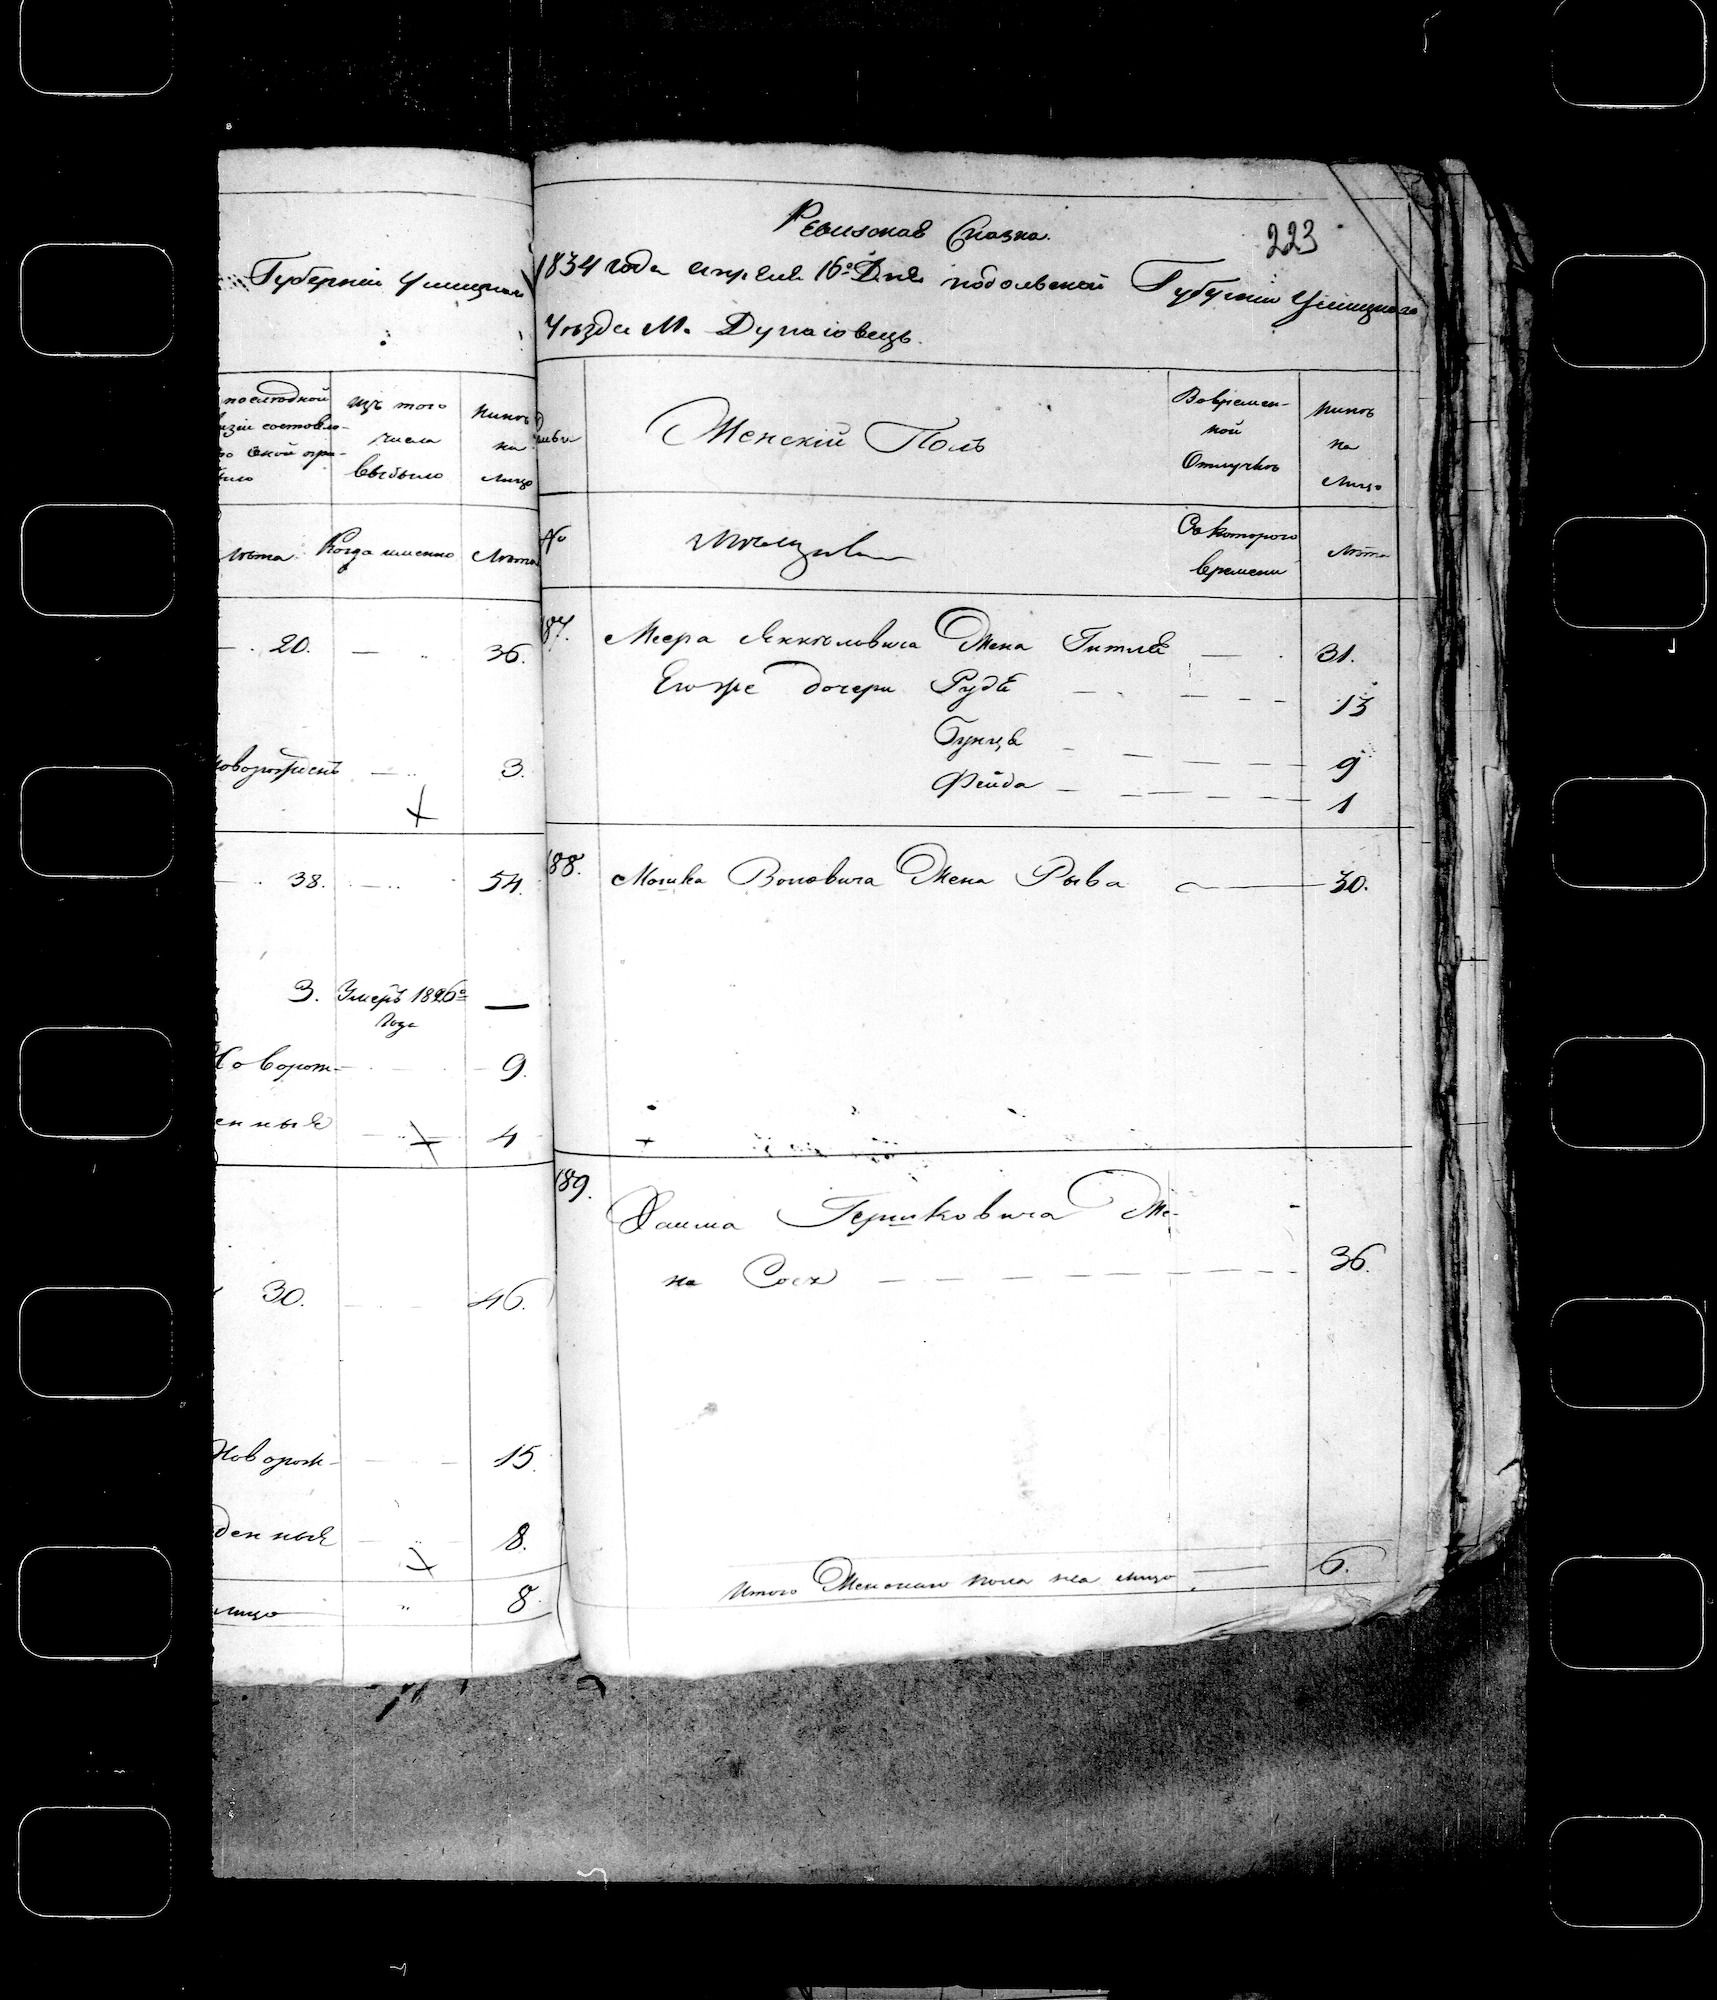 Губерніи Ушицкаго
последной
изъ того
нинѣ
числа
на
выбыло
лицо
лѣта
Когда именно
Лѣта
20.
36.
новорожденъ
3.
38.
54.
3. Умеръ 1826го
года
9.
Новорож-
енныя
4
30.
46.
Новорож-
15.
денныя
8.
лицо
8.
223
Ревизская Сказка.
1834 года апреля 16го Дня подольской Губерніи Ушицкаго
Уезда М. Дунаювецъ.
Женскій Полъ
Вовремен-
ной
Отлучкѣ
нинѣ
на
Лицо
№
Мѣщане
Съ которого
времени
лѣта
187.
Меера Янкѣловича Жена Гитля
31.
Егоже дочери Рудя
13
Гунця
9
Фейда
1
188.
Мошка Воловича Жена Рыва
30.
189.
Хаима Гершковича Же-
на Сося
36.
Итого Женскаго пола на лицо
6.